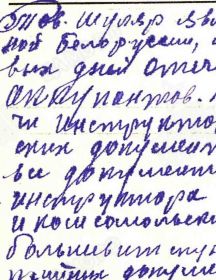 Тов. Шуляр яв
ной Белоруссии,
вых дней отеч
оккупантов.
чи инструкто
ских документ
все документ
инструктора
и комсомольск
большевит